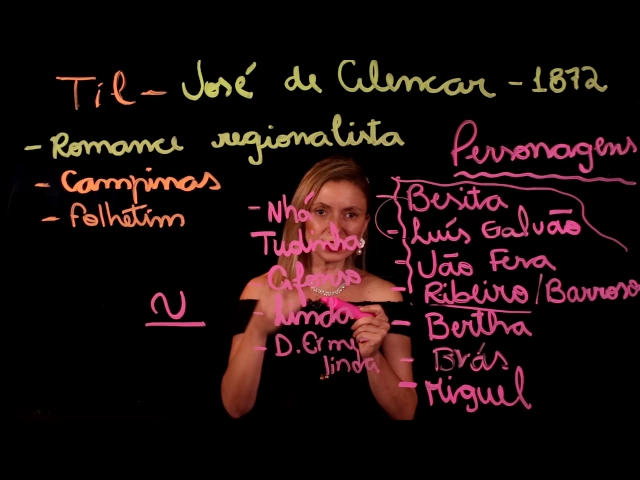 Til - José de Alencar - 1872
- Romance regionalista
- Campinas
- Folhetim
Personagens
- Nhá
Tudinha
- Afonso
- Linda
- D. Erme
linda
- Besita
- Luís Galvão
- Jão Fera
- Ribeiro / Barroso
- Bertha
- Brás
- Miguel
~